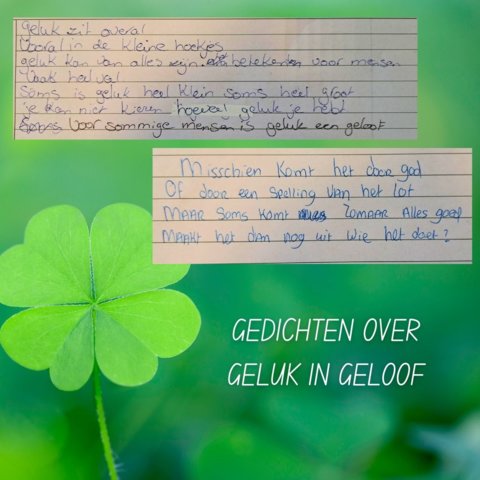 Geluk zit overal
Vooral in de kleine hoekjes
geluk kan van alles zijn. betekenen voor mensen
Vaak heel veel
Soms is geluk heel klein soms heel groot
je kan niet kiezen hoeveel geluk je hebt
Voor sommige mensen is geluk een geloof
Misschien komt het door god
Of door een speling van het lot
MAAR Soms komt zomaar Alles goed
MAAKt het dan nog uit wie het doet?
GEDICHTEN OVER
GELUK IN GELOOF